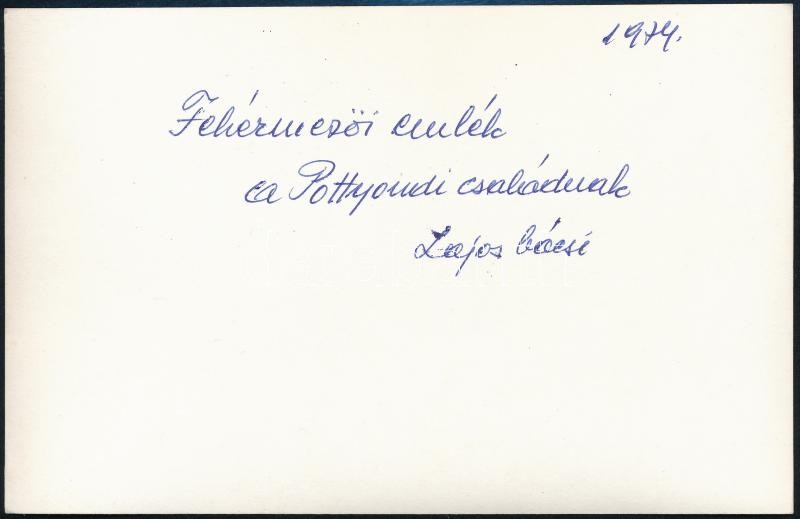 1974.
Fehérmezői emlék
a Pottyondi családnak
Lajos bácsi